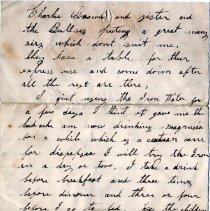 Charlie and sister and
the Bullses putting a great many
airs which dont suit me,
they have a table for their
express use and come down after
all the rest are there;
I quit using the Iron Water for
a few days I think it gave me the
headache am now drinking magnesia
for a while which is a certain cure
for dispepsia I will try the Iron
in a day or two. I take a drink
before breakfast and three times
before dinner and three or four
before I go to bed